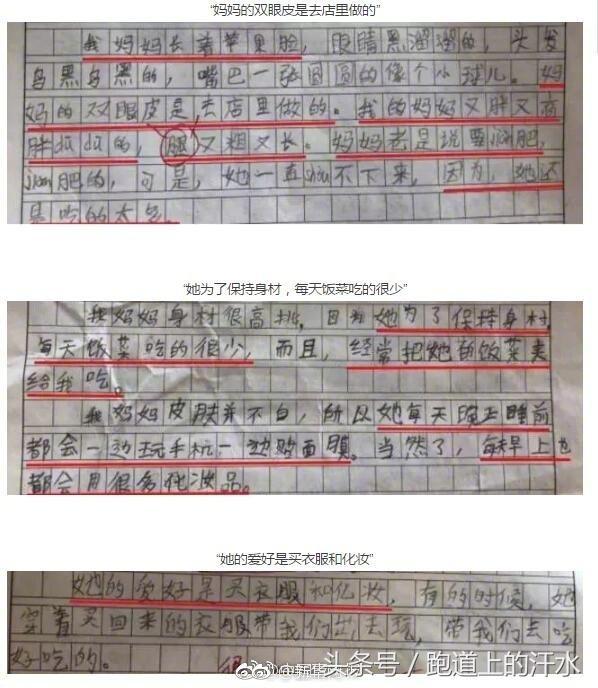 “妈妈的双眼皮是去店里做的”
我妈妈长着苹果脸，眼睛黑溜溜的，头发
乌黑乌黑的，嘴巴一张圆圆的像个小球儿。妈
妈的双眼皮是去店里做的。我的妈妈又胖又高
胖dūdū的，腿又粗又长。妈妈老是说要jiǎn肥，
jiǎn肥的，可是，她一直jiǎn不下来，因为，她还
是吃的太多。
“她为了保持身材，每天饭菜吃的很少”
我妈妈身材很高挑，因为她为了保持身材，
每天饭菜吃的很少，而且，经常把她的饭菜夹
给我吃。
我妈妈皮肤并不白，所以她每天晚上睡前
都会一边玩手机一边贴面膜。当然了，每天早上也
都会用很多化妆品。
“她的爱好是买衣服和化妆”
她的爱好是买衣服和化妆，有的时候，她
穿着买回来的衣服带我们出去玩，带我们去吃
好吃的。
头条号／跑道上的汗水